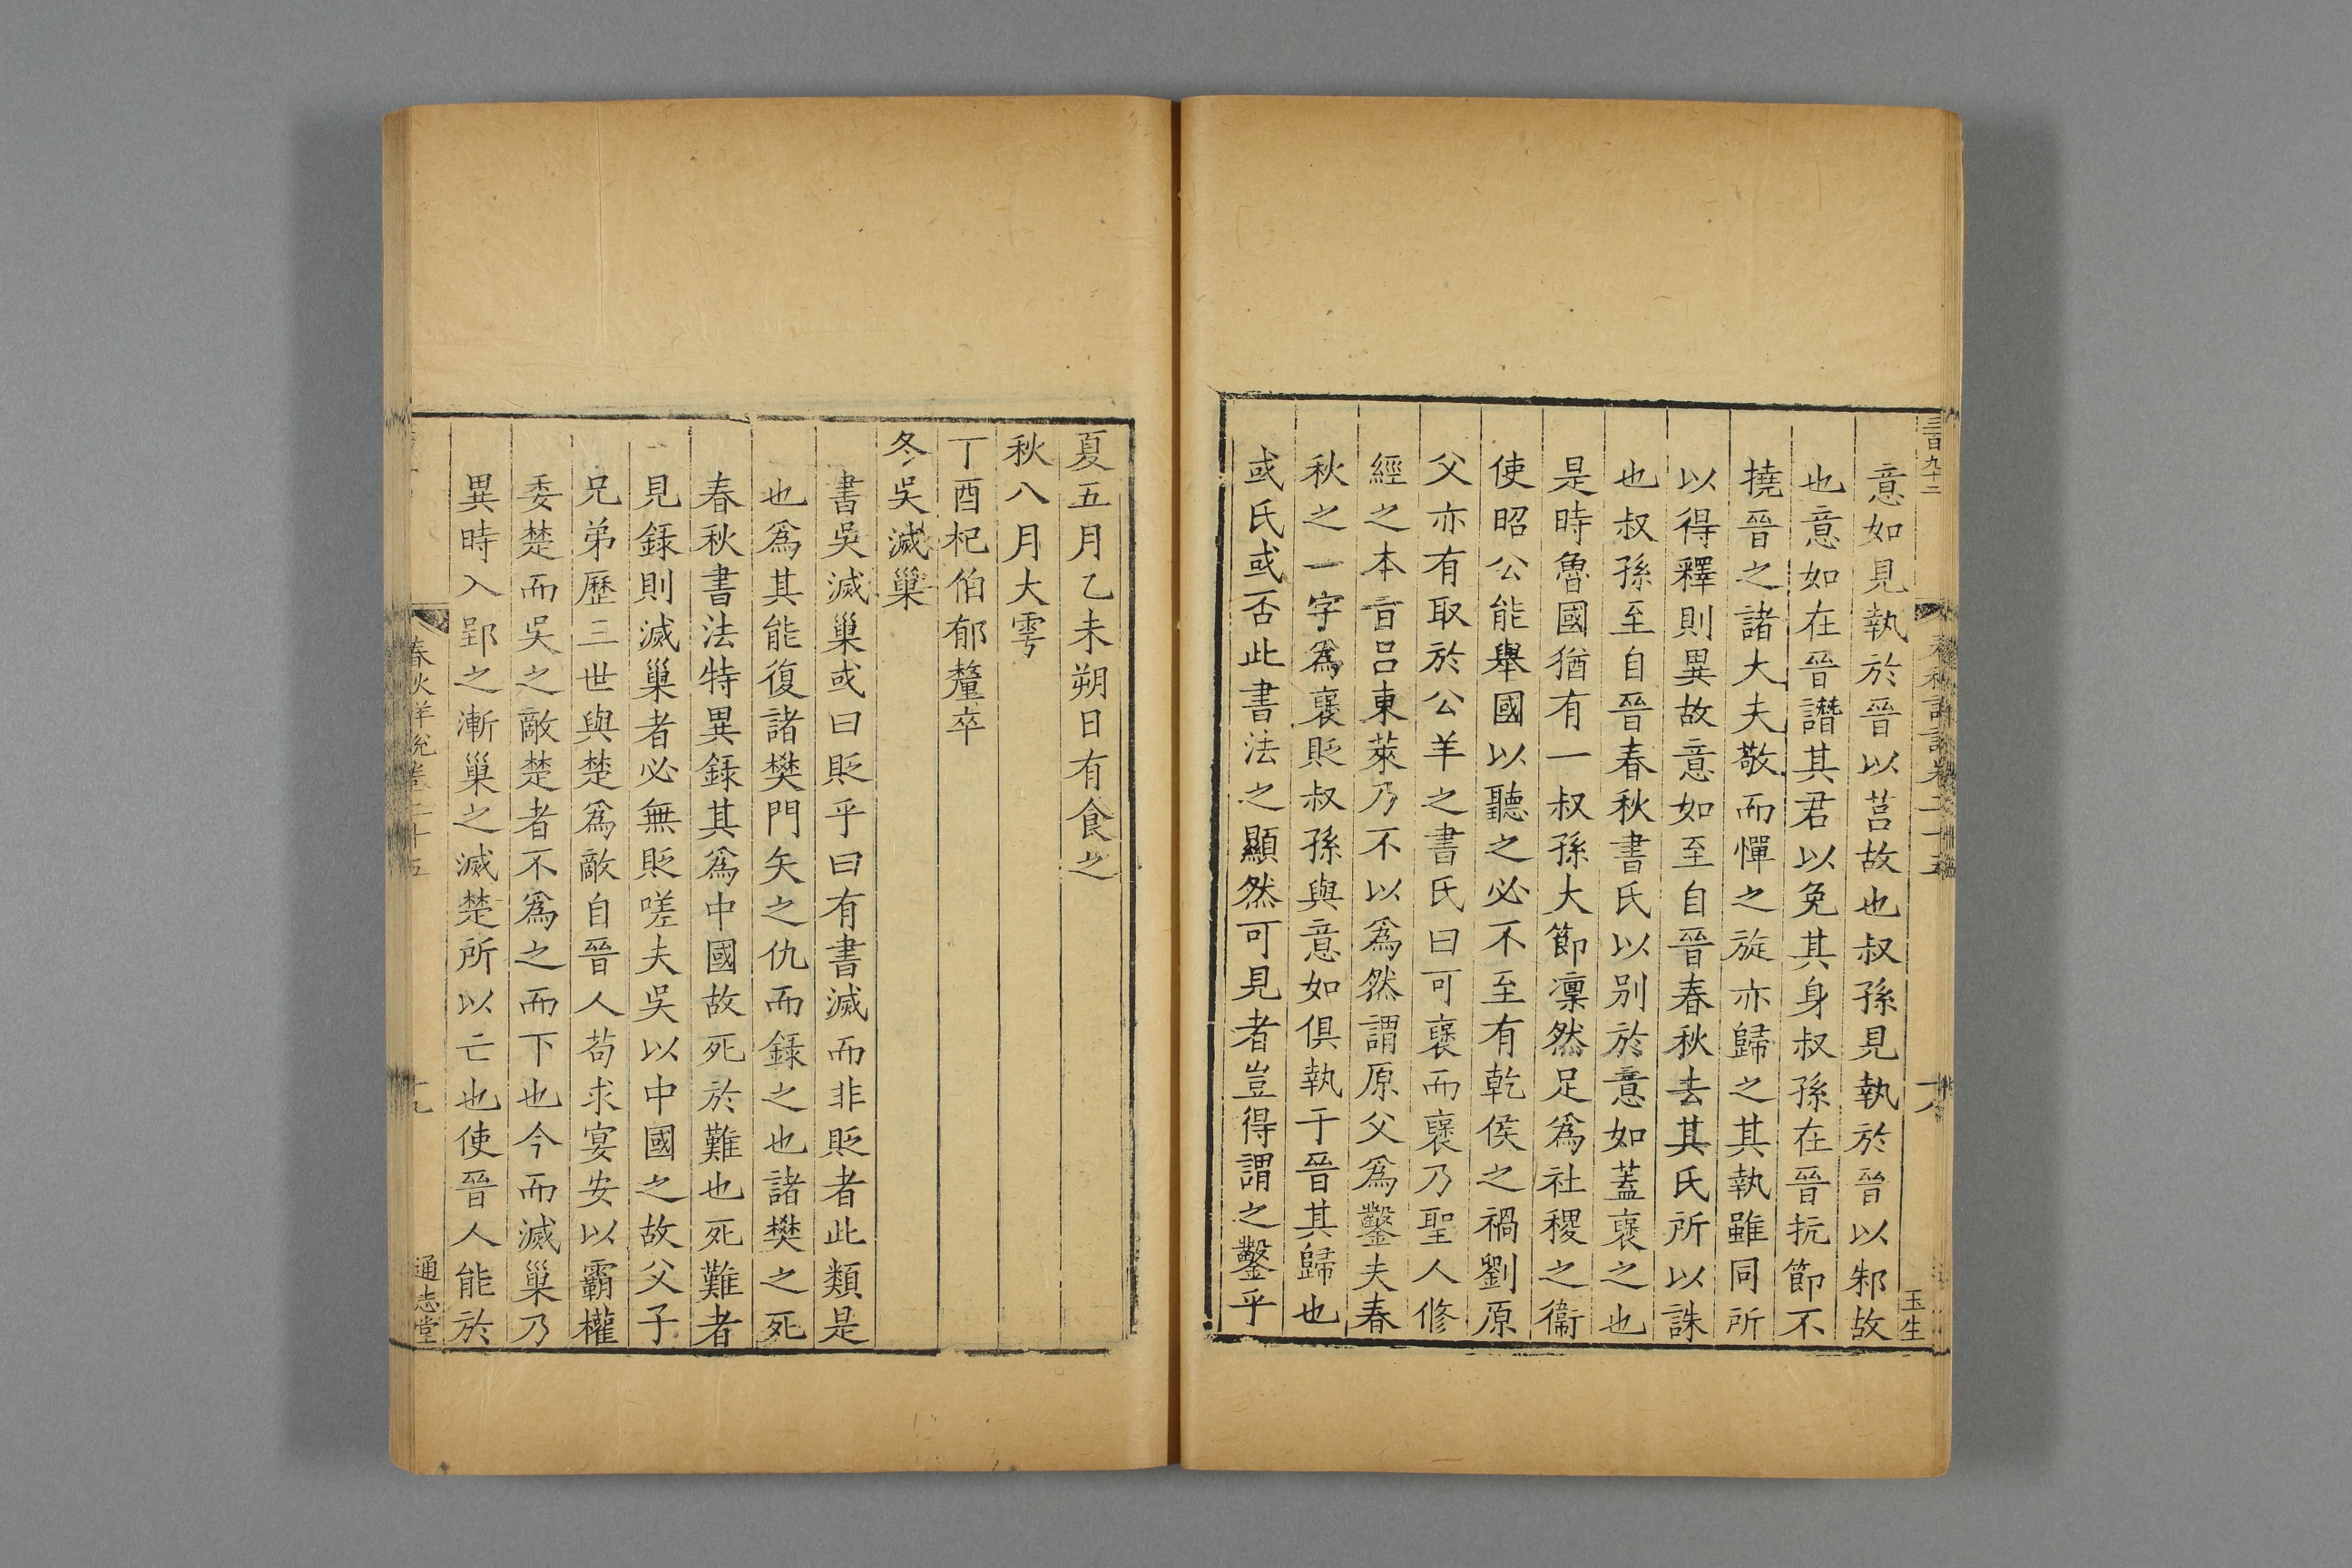 三百九十二
玉生
意如見執於晉以莒故也叔孫見執於晉以邾故
也意如在晉譖其君以免其身叔孫在晉抗節不
撓晉之諸大夫敬而憚之旋亦歸之其執雖同所
以得釋則異故意如至自晉春秋去其氏所以誅
也叔孫至自晉春秋書氏以別於意如蓋襃之也
是時魯國猶有一叔孫大節凜然足爲社稷之衞
使昭公能舉國以聽之必不至有乾侯之禍劉原
父亦有取於公羊之書氏曰可襃而襃乃聖人修
經之本旨呂東萊乃不以爲然謂原父爲鑿夫春
秋之一字爲襃貶叔孫與意如俱執于晉其歸也
或氏或否此書法之顯然可見者豈得謂之鑿乎
夏五月乙未朔日有食之
秋八月大雩
丁酉杞伯郁釐卒
冬吳滅巢
書吳滅巢或曰貶乎曰有書滅而非貶者此類是
也爲其能復諸樊門矢之仇而錄之也諸樊之死
春秋書法特異錄其爲中國故死於難也死難者
見錄則滅巢者必無貶嗟夫吳以中國之故父子
兄弟歷三世與楚爲敵自晉人苟求宴安以霸權
委楚而吳之敵楚者不爲之而下也今而滅巢乃
異時入郢之漸巢之滅楚所以亡也使晉人能於
春秋詳說卷二十五
十九
通志堂